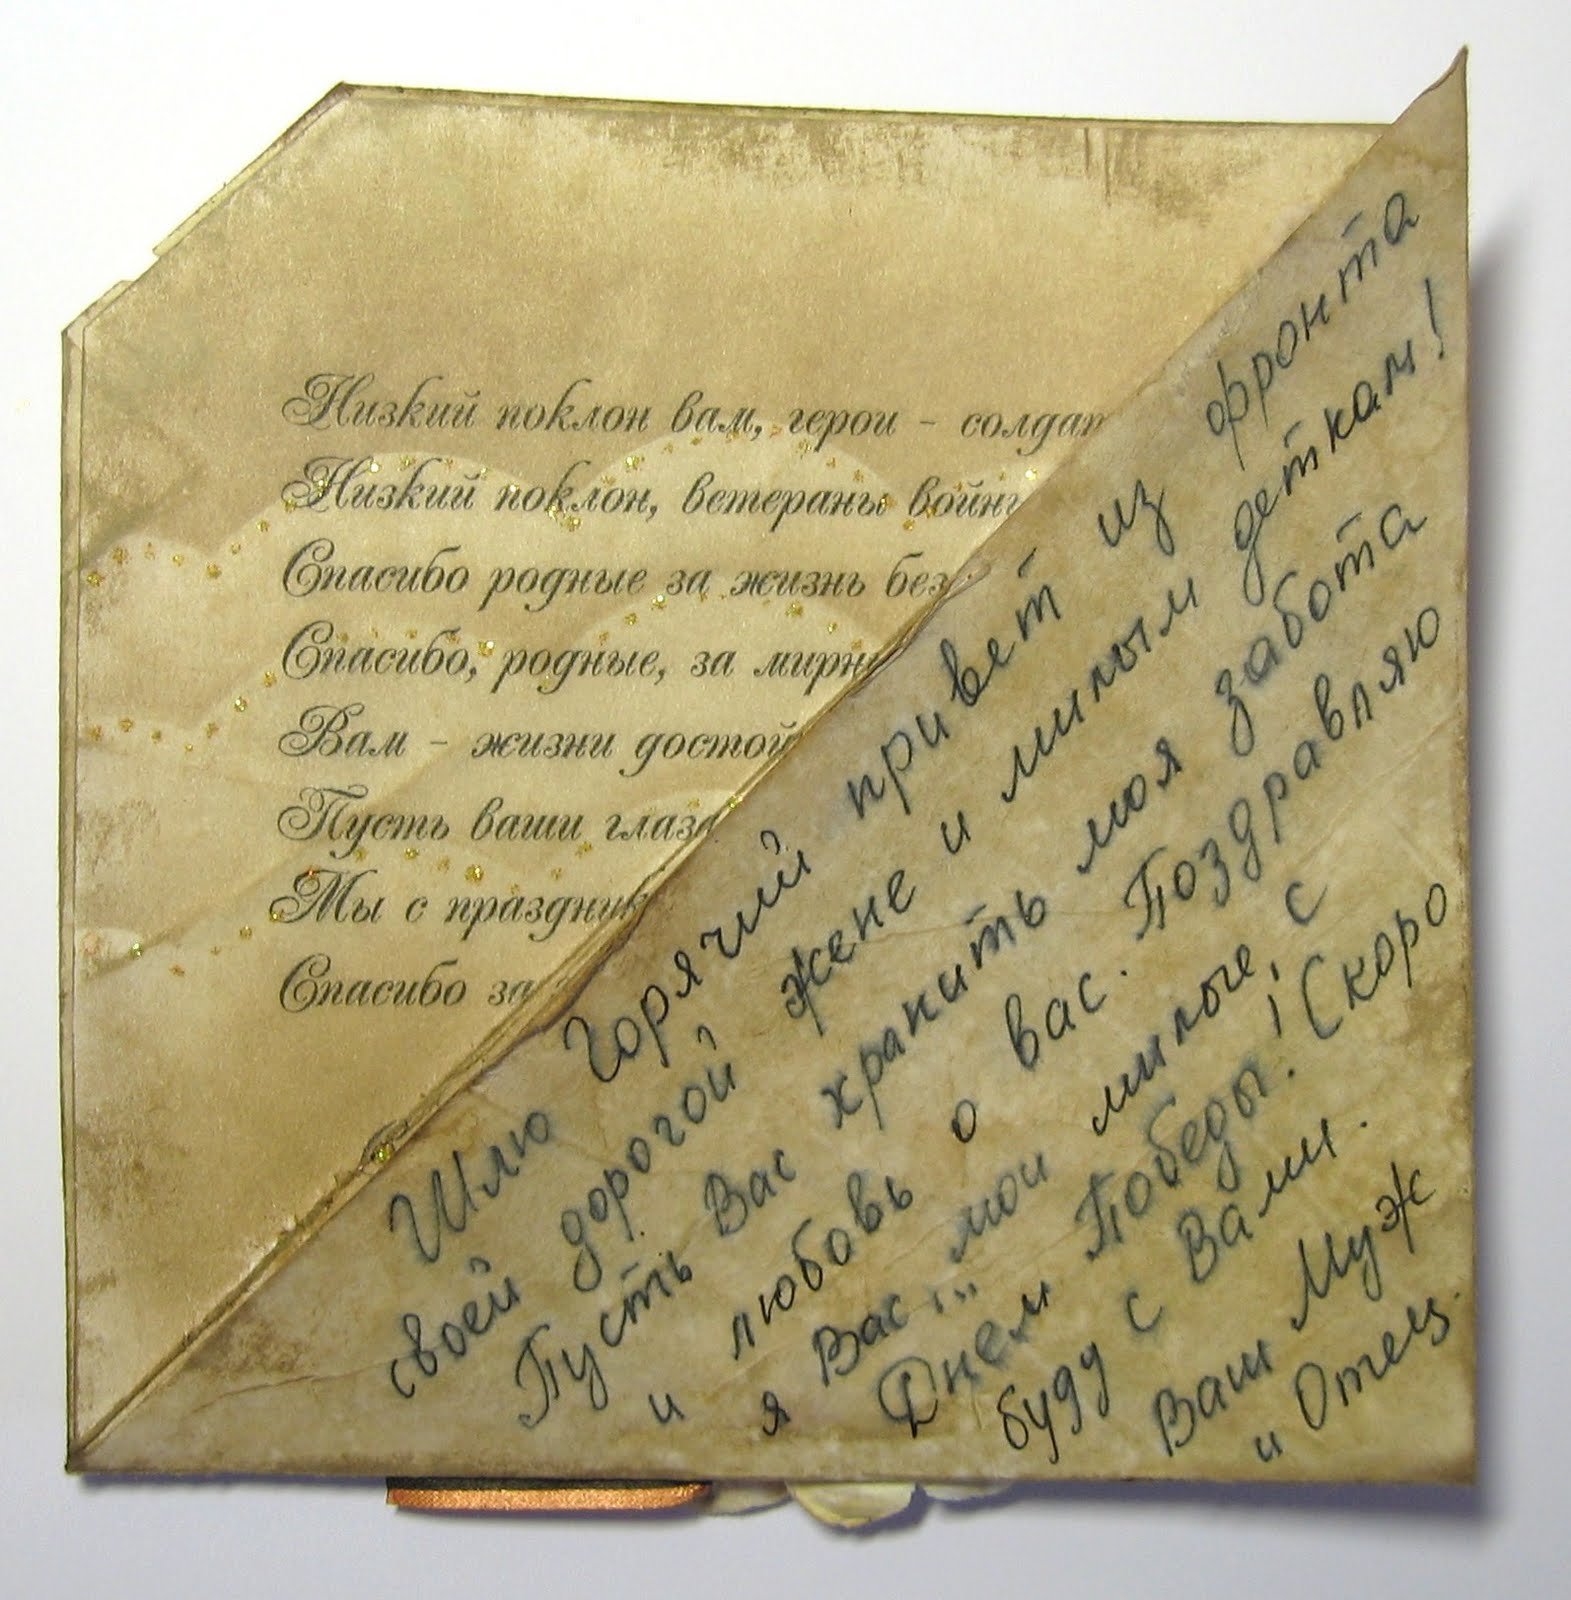 Низкий поклон вам, герои - солдат
Низкий поклон, ветераны войны
Спасибо родные за жизнь без
Спасибо, родные, за мирн
Вам - жизни достой
Пусть ваши глаза
Мы с праздник
Спасибо за
Шлю Горячий привет из фронта
своей дорогой жене и милым деткам!
Пусть Вас хранить моя забота
и любовь о вас. Поздравляю
я Вас... мои милые, с
Днем Победы! Скоро
буду с Вами.
Ваш Муж
и Отец.